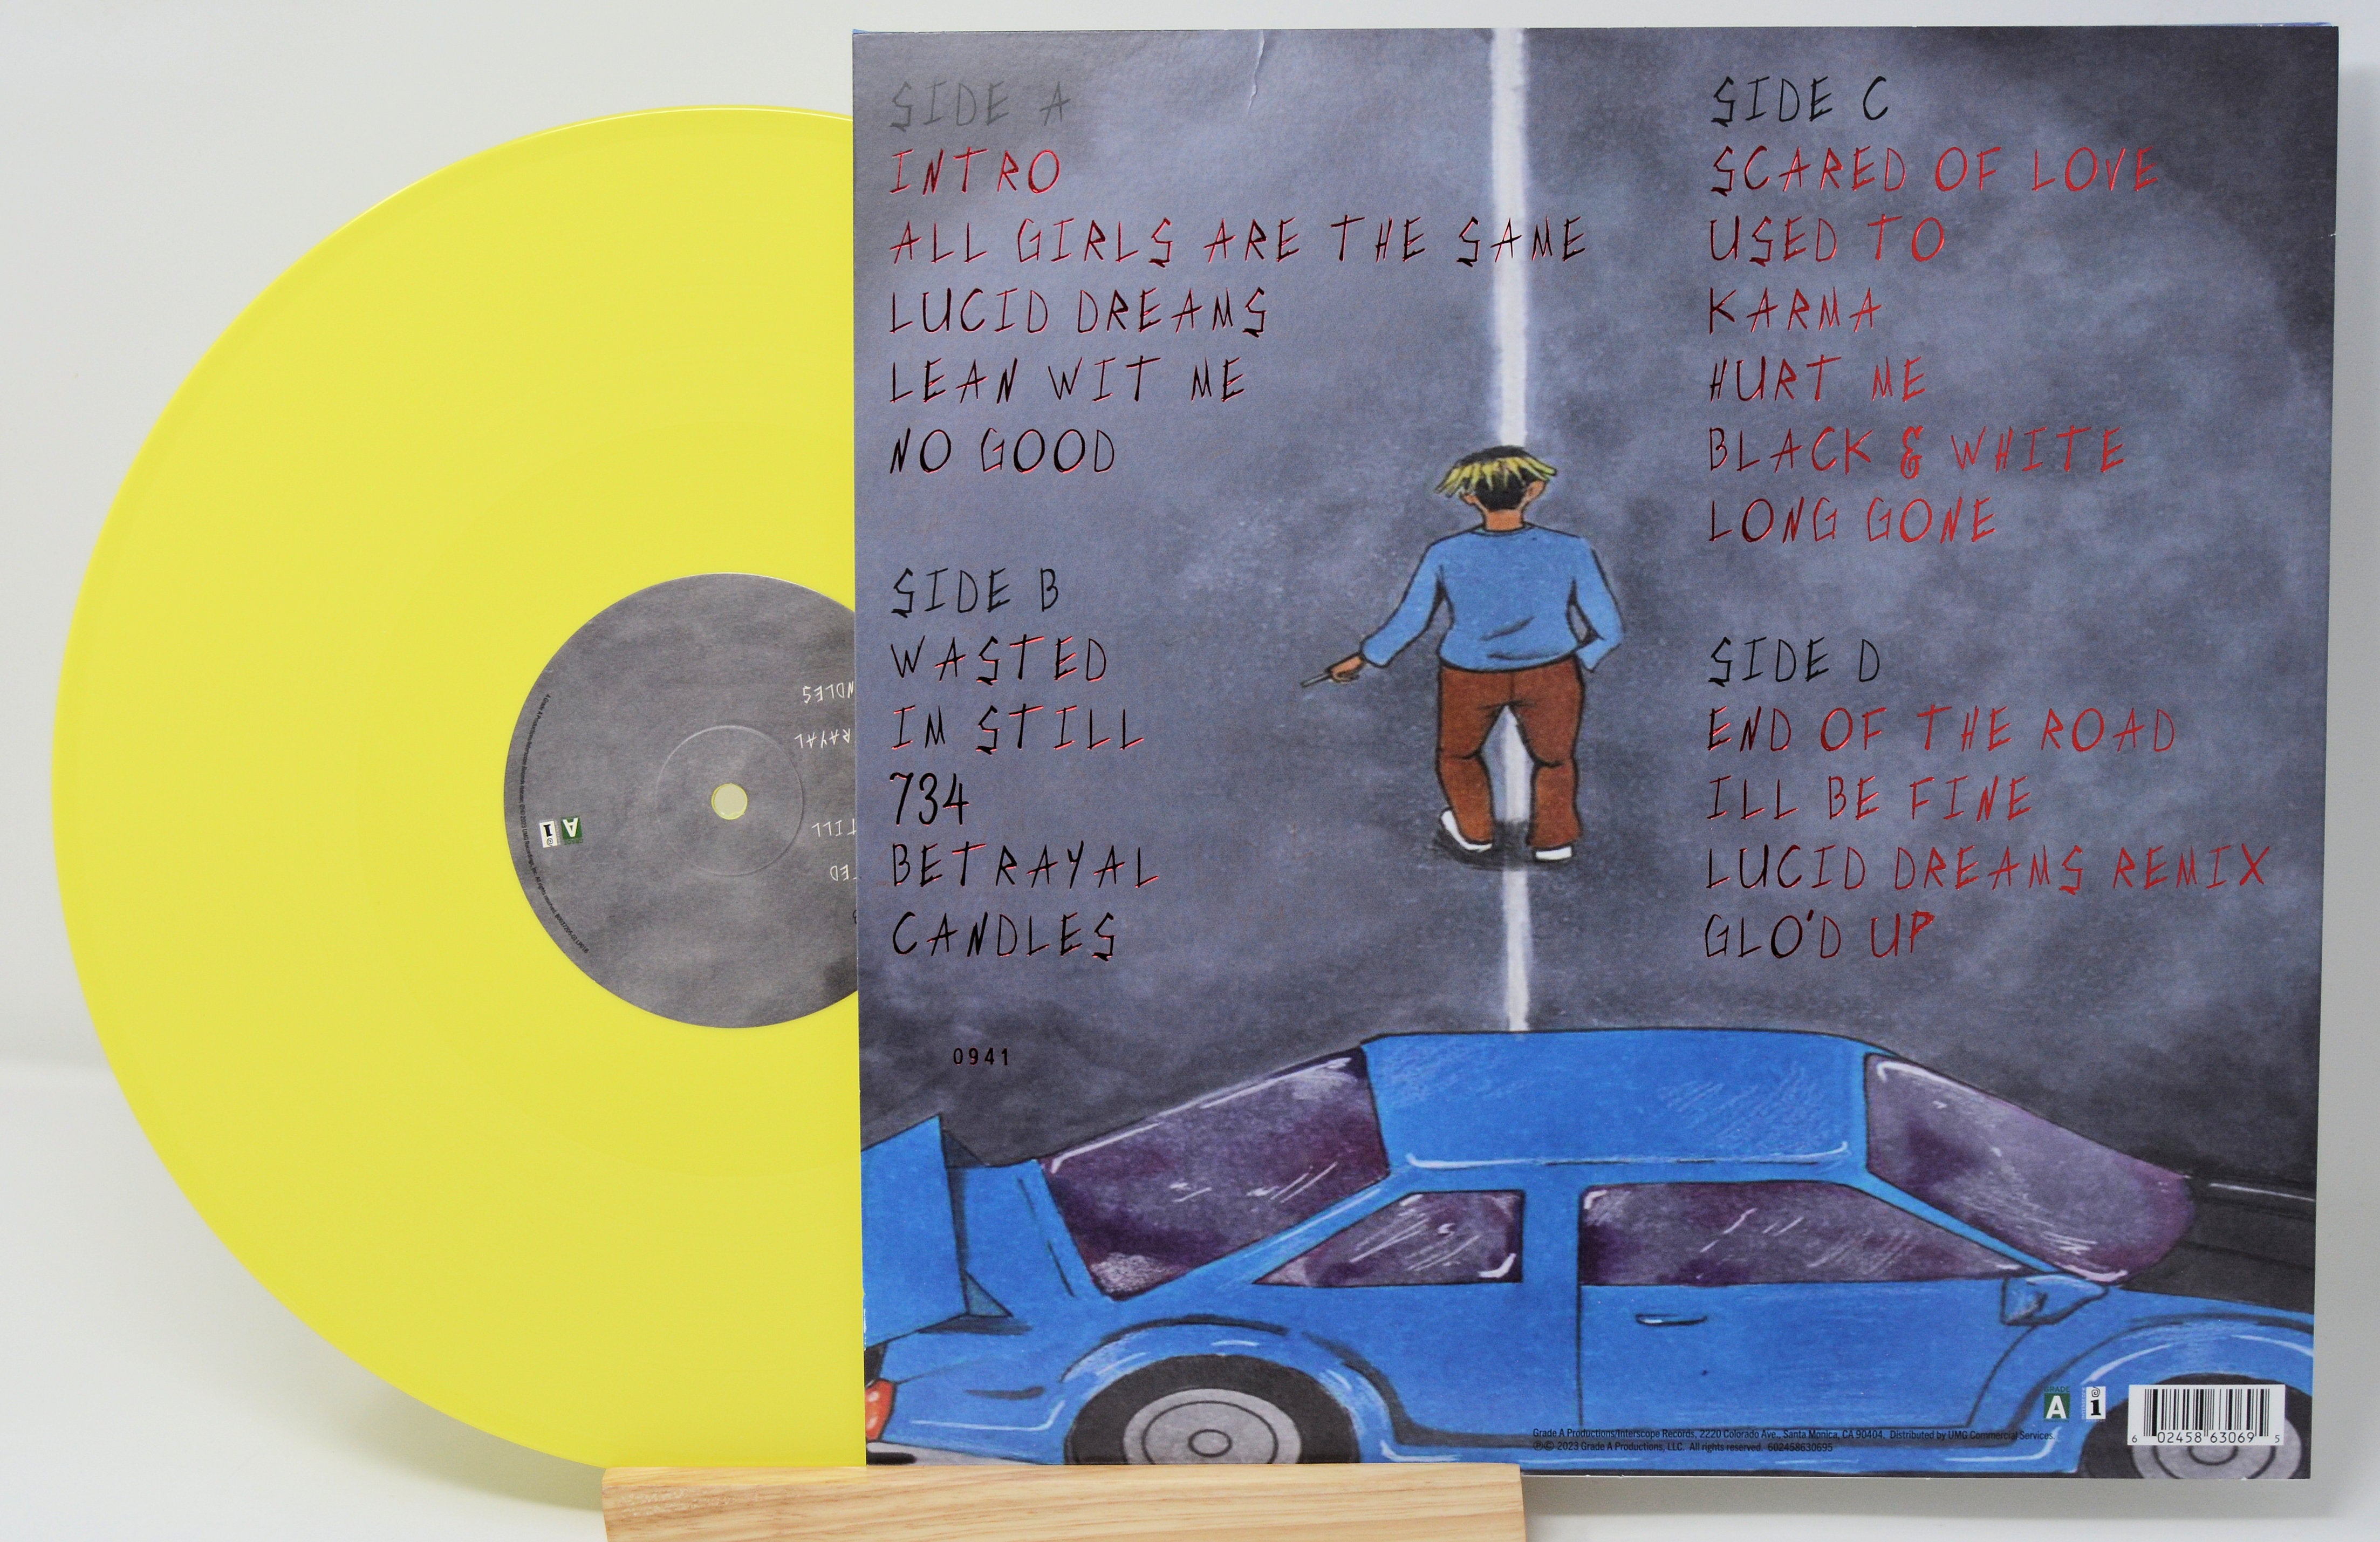 SIDE A
INTRO
ALL GIRLS ARE THE SAME
LUCID DREAMS
LEAN WIT ME
NO GOOD
SIDE B
WASTED
IM STILL
734
BETRAYAL
CANDLES
0941
SIDE C
SCARED OF LOVE
USED TO
KARMA
HURT ME
BLACK & WHITE
LONG GONE
SIDE D
END OF THE ROAD
ILL BE FINE
LUCID DREAMS REMIX
GLO'D UP
GRADE
A
i
Grade A Productions/Interscope Records, 2220 Colorado Ave., Santa Monica, CA 90404. Distributed by UMG Commercial Services.
℗© 2023 Grade A Productions, LLC. All rights reserved. 602458630695
6 02458 63069 5
NDLES
RAYAL
TILL
TED
A
i